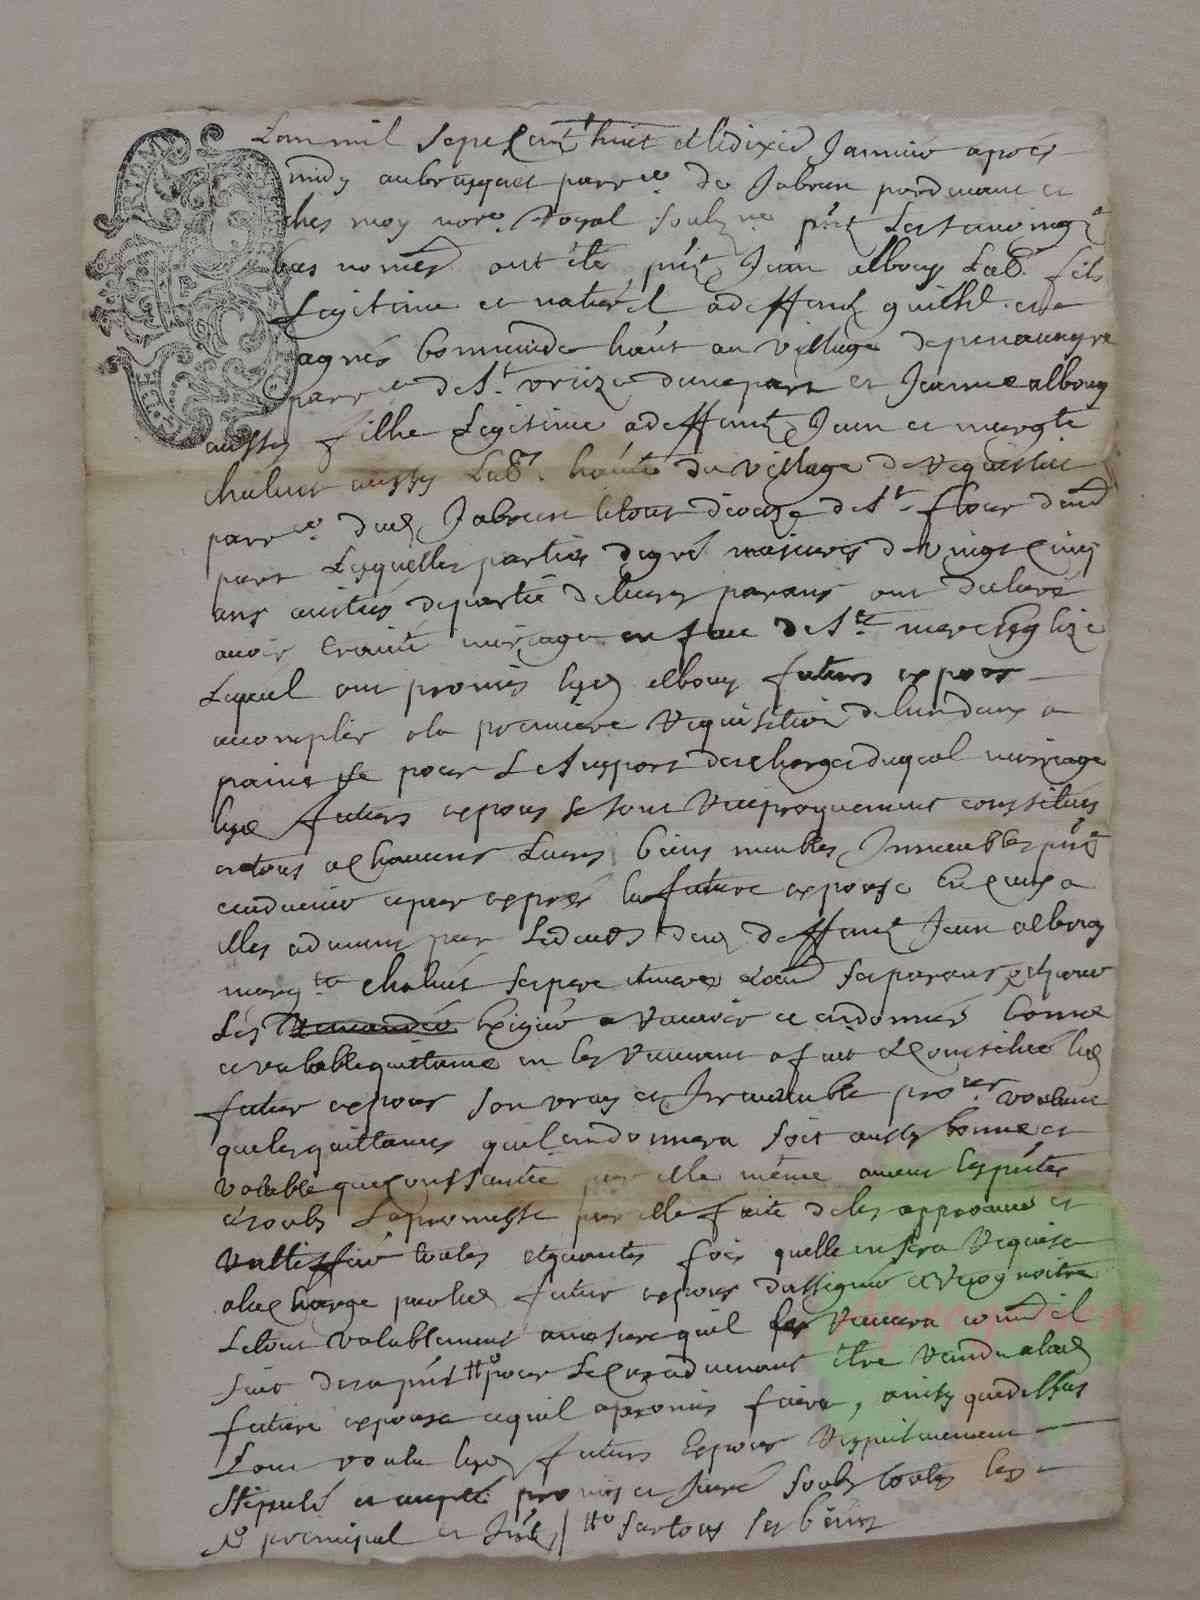 Lan mil sept cent huit et le dixie Janvier apres
midy au bruquet parr.e de Jabrun pardevant et
ches moy nore Royal soubz.ne pnt Les temoings
bas només ont été pnt Jean albouy Lab. fils
Legitime et naturel a deffunt guilh. et a
agnés bonneide ha'nt au village de
parr.e de St. urcize dune part et Jeanne albouy
aussy filhe Legitime a deffunt Jean et margte
chaluet aussy Lab. ha'nte du village de
parr.e dud Jabrun le tout dioceze de St flour dautre
part Lesquelles parties de gré majeures de vingt cinq
ans de leurs parans ont declaré
avoir traité mariage en face de Ste mere Esglize
Lequel ont promis lesd albouy futurs expoux
accomplir a la premiere requisition de lun deux a
paine &c pour Le suport des charges duquel mariage
lesd futurs expoux se sont reciproquement constitués
en tous et chacuns Leurs biens meubles Immeubles pnt
et advenir et par expres la future expouse en ceux a
elles advenus par Le deces dud deffunt Jean albouy
marg.te chaluet ses pere et mere et aud ses parans et pour
Les exiger recevoir et en donner bonne
et valable quittance en les recevant a fait et constitué led
futur expoux son vray et Irrevocable pro.eur voulant
que les quittances quil en donnera soit aussy bonne et
valable que consantie par elle même avecq les pntes
et soubz La promesse par elle faite de les approuver et
rattiffier toutes et quantes fois quelle en sera requise
a la charge par led futur expoux dassigner et reconnoitre
Le tout valablement a mesure quil recevra comme il
fait des a pnt pour Le cas advenant être rendu a lad
future expouse ce quil a promis faire, ainsy que dessus
Lont voulu lesd futurs Expoux respectivement
Stipulé et accepté promis et Juré soubz toutes les
principal et sur tous ses biens